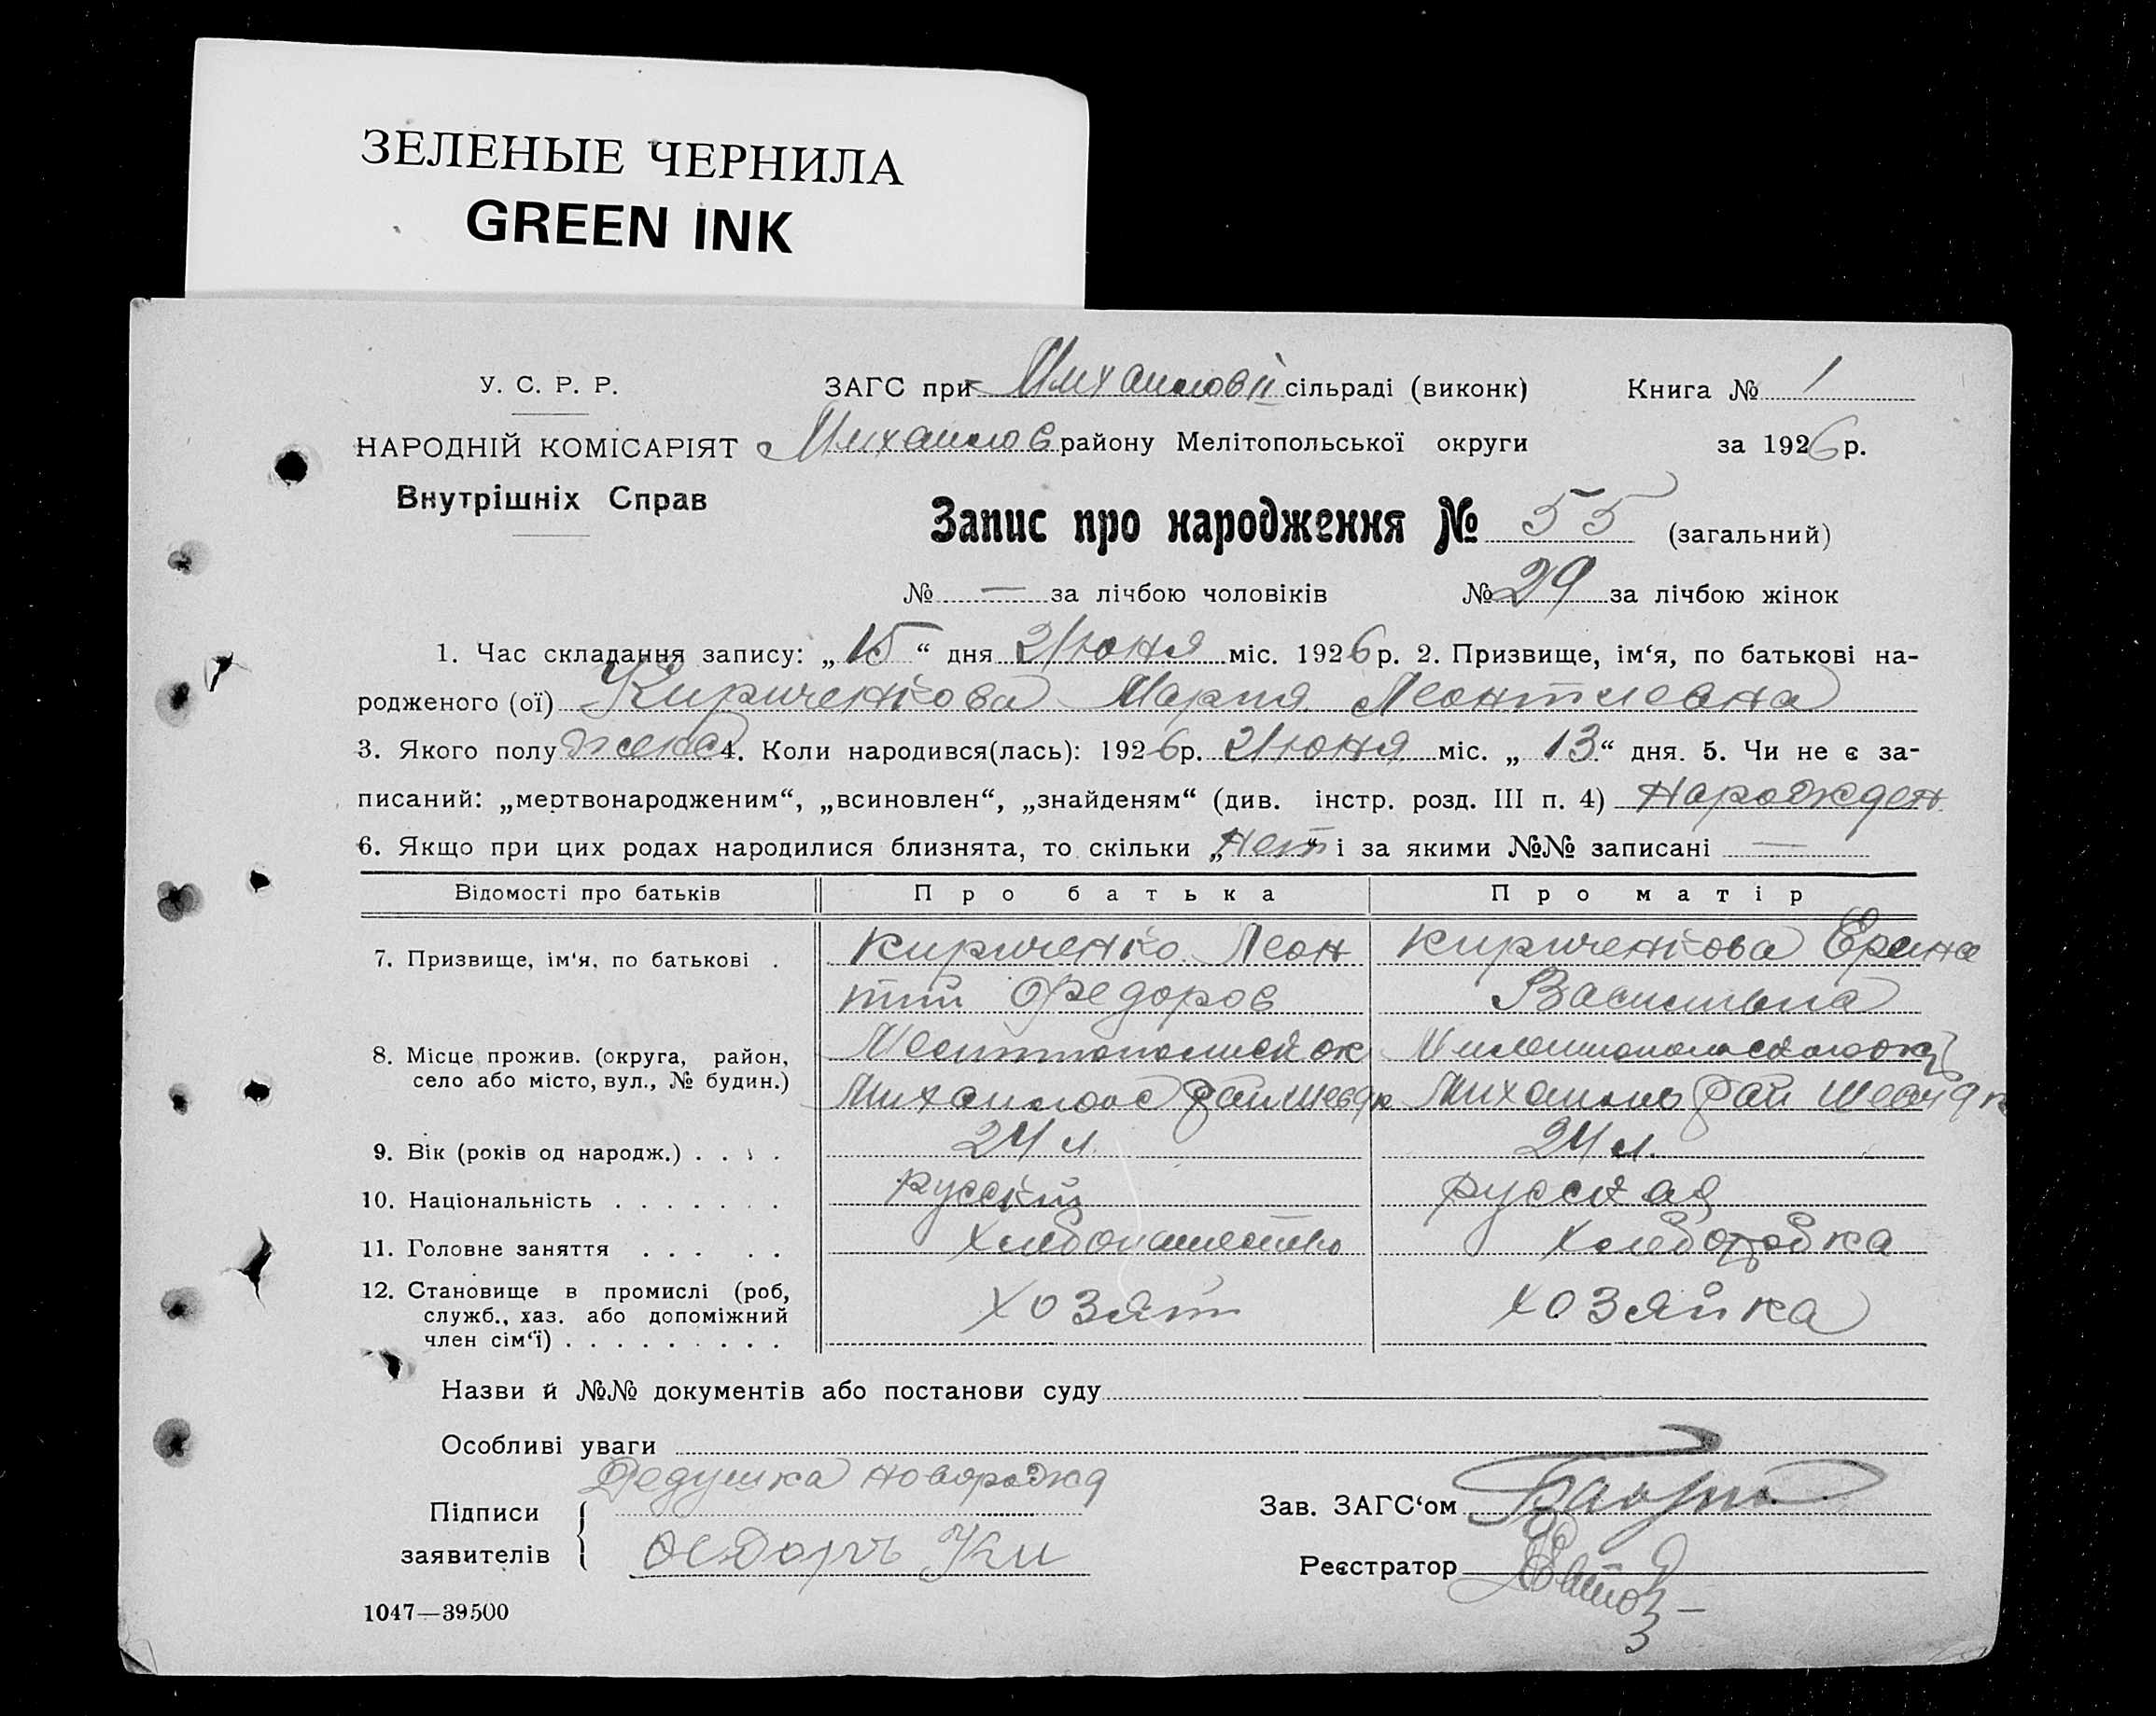 ЗЕЛЕНЫЕ ЧЕРНИЛА
GREEN INK
У. С. Р. Р.
НАРОДНІЙ КОМІСАРІЯТ
Внутрішніх Справ
ЗАГС при Михайловй сільраді (виконк) Книга № 1
Михайлов району Мелітопольської округи за 1926 р.
Запис про народження № 55 (загальний)
№ — за лічбою чоловіків № 29 за лічбою жінок
1. Час складання запису: „15“ дня Июня міс. 1926 р. 2. Призвище, ім‘я, по батькові на-
родженого (ої) Кириченкова Мария Леонтиевна
3. Якого полу жена 4. Коли народився(лась): 1926 р. Июня міс. „13“ дня. 5. Чи не є за-
писаний: „мертвонародженим“, „всиновлен“, „знайденям“ (див. інстр. розд. III п. 4) Народжден
6. Якщо при цих родах народилися близнята, то скільки „Нет“ і за якими №№ записані —
Відомості про батьків Про батька Про матір
7. Призвище, ім‘я, по батькові . Кириченко Леон Кириченкова Ерина
тий Федоров Васильвна
8. Місце прожив. (округа, район,
село або місто, вул., № будин.)
Михайлов рай Михайлов рай
9. Вік (років од народж.) . . . . 24 л. 24 л.
10. Національність . . . . . . . русский русская
11. Головне заняття . . . . . Хлебопашество Хлеборобка
12. Становище в промислі (роб,
служб., хаз. або допоміжний
член сім‘ї) . . . . . . . . . хозяин хозяйка
Назви й №№ документів або постанови суду
Особливі уваги
Дедушка новорожд
Підписи
заявителів Федоръ Ки
Зав. ЗАГС‘ом
Реєстратор
1047—39500